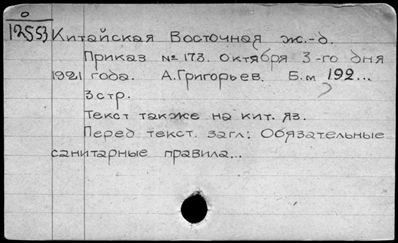 0
12553
Китайская Восточная ж.-д.
Приказ № 173. Октября 3-го дня
1921 года. А.Григорьев. Б.м 192...
3стр.
Текст также на кит. яз.
Перед текст. загл: Обязательные
санитарные правила...